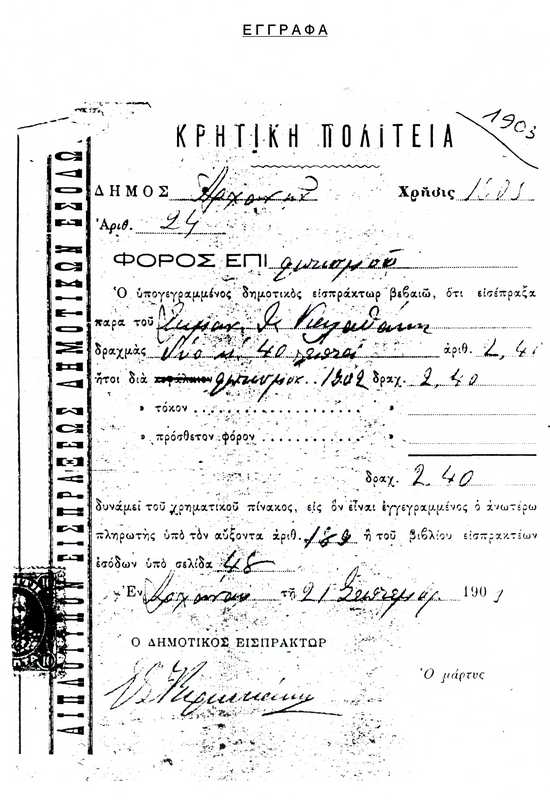 ΕΓΓΡΑΦΑ
1903
ΚΡΗΤΙΚΗ ΠΟΛΙΤΕΙΑ
ΔΗΜΟΣ Αρχανών Χρῆσις 1903
Ἀριθ. 24
ΦΟΡΟΣ ΕΠΙ φωτισμοῦ
Ὁ ὑπογεγραμμένος δημοτικὸς εἰσπράκτωρ βεβαιῶ, ὅτι εἰσέπραξα
παρα τοῦ
δραχμὰς Δύο κ 40 λεπτά ἀριθ. 2,40
ἤτοι διὰ φωτισμοκ. 1902 δραχ. 2,40
» τόκον »
» πρόσθετον φόρον »
δραχ. 2.40
δυνάμει τοῦ χρηματικοῦ πίνακος, εἰς ὃν εἶναι ἐγγεγραμμένος ὁ ἀνωτέρω
πληρωτὴς ὑπὸ τὸν αὔξοντα ἀριθ. 189 ἢ τοῦ βιβλίου εἰσπρακτέων
ἐσόδων ὑπὸ σελίδα 48
Ἐν Αρχάναις τῇ 21 Σεπτεμβρ. 1903
Ο ΔΗΜΟΤΙΚΟΣ ΕΙΣΠΡΑΚΤΩΡ
Ὁ μάρτυς
ΔΙΠΛΟΤΥΠΟΝ ΕΙΣΠΡΑΞΕΩΣ ΔΗΜΟΤΙΚΩΝ ΕΣΟΔΩ